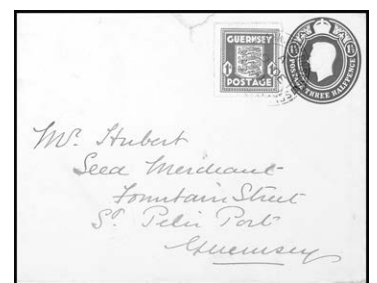 GUERNSEY
1 1
POSTAGE
POSTAGE THREE HALFPENCE
Mr. Hubert
Seed Merchant
Fountain Street
St. Peter Port
Guernsey